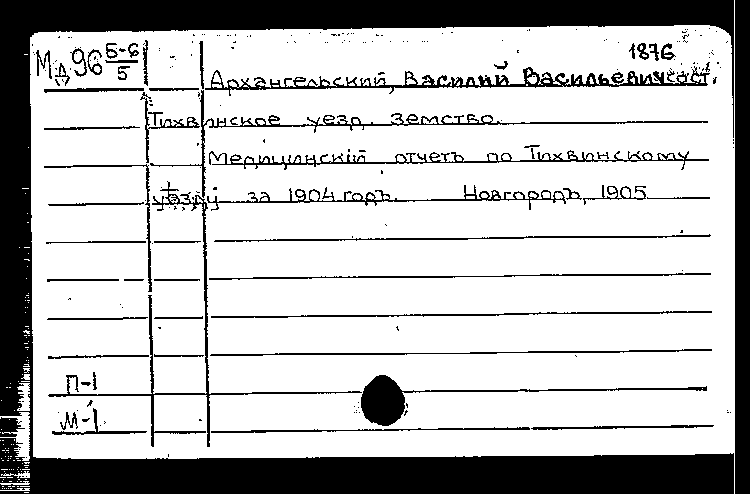 1876
Мд 96 5-6/5
Архангельский, Василий Васильевич сост.
Тихвинское уезд. земство.
Медицинскiй отчетъ по Тихвинскому
уѣзду за 1904 годъ. Новгородъ, 1905
П-1
М-1